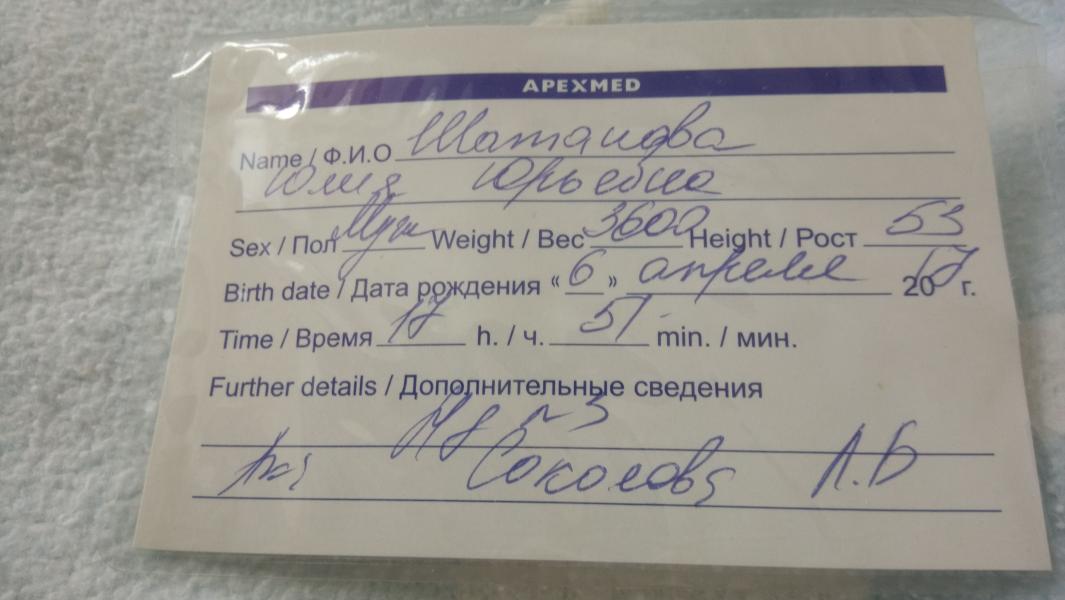 APEXMED
Name / Ф.И.О Шатандва
Юлия Юрьевна
Sex / Пол Муж Weight / Вес 3600 Height / Рост 53
Birth date / Дата рождения « 6 » апреля 2017 г.
Time / Время 17 h. / ч. 51 min. / мин.
Further details / Дополнительные сведения
№ 3
Соколова А.Б